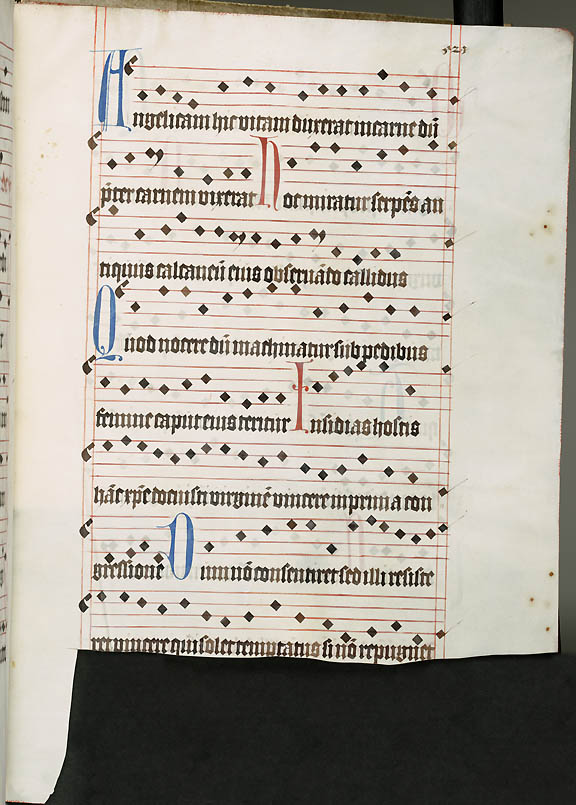 323
Angelicam hic vitam duxerat in carne dū
p̄ter carnem vixerat Hoc miratur serpēs an
tiquus calcaneū eius observādo callidus
Quod nocere dū machinatur sub pedibus
femine caput eius teritur Insidias hostis
hāc xp̄e docuisti virginē vincere in prima con
gressione Dum nō consentiret sed illi resiste
ret vincere qui solet temptatus si nō repugnet